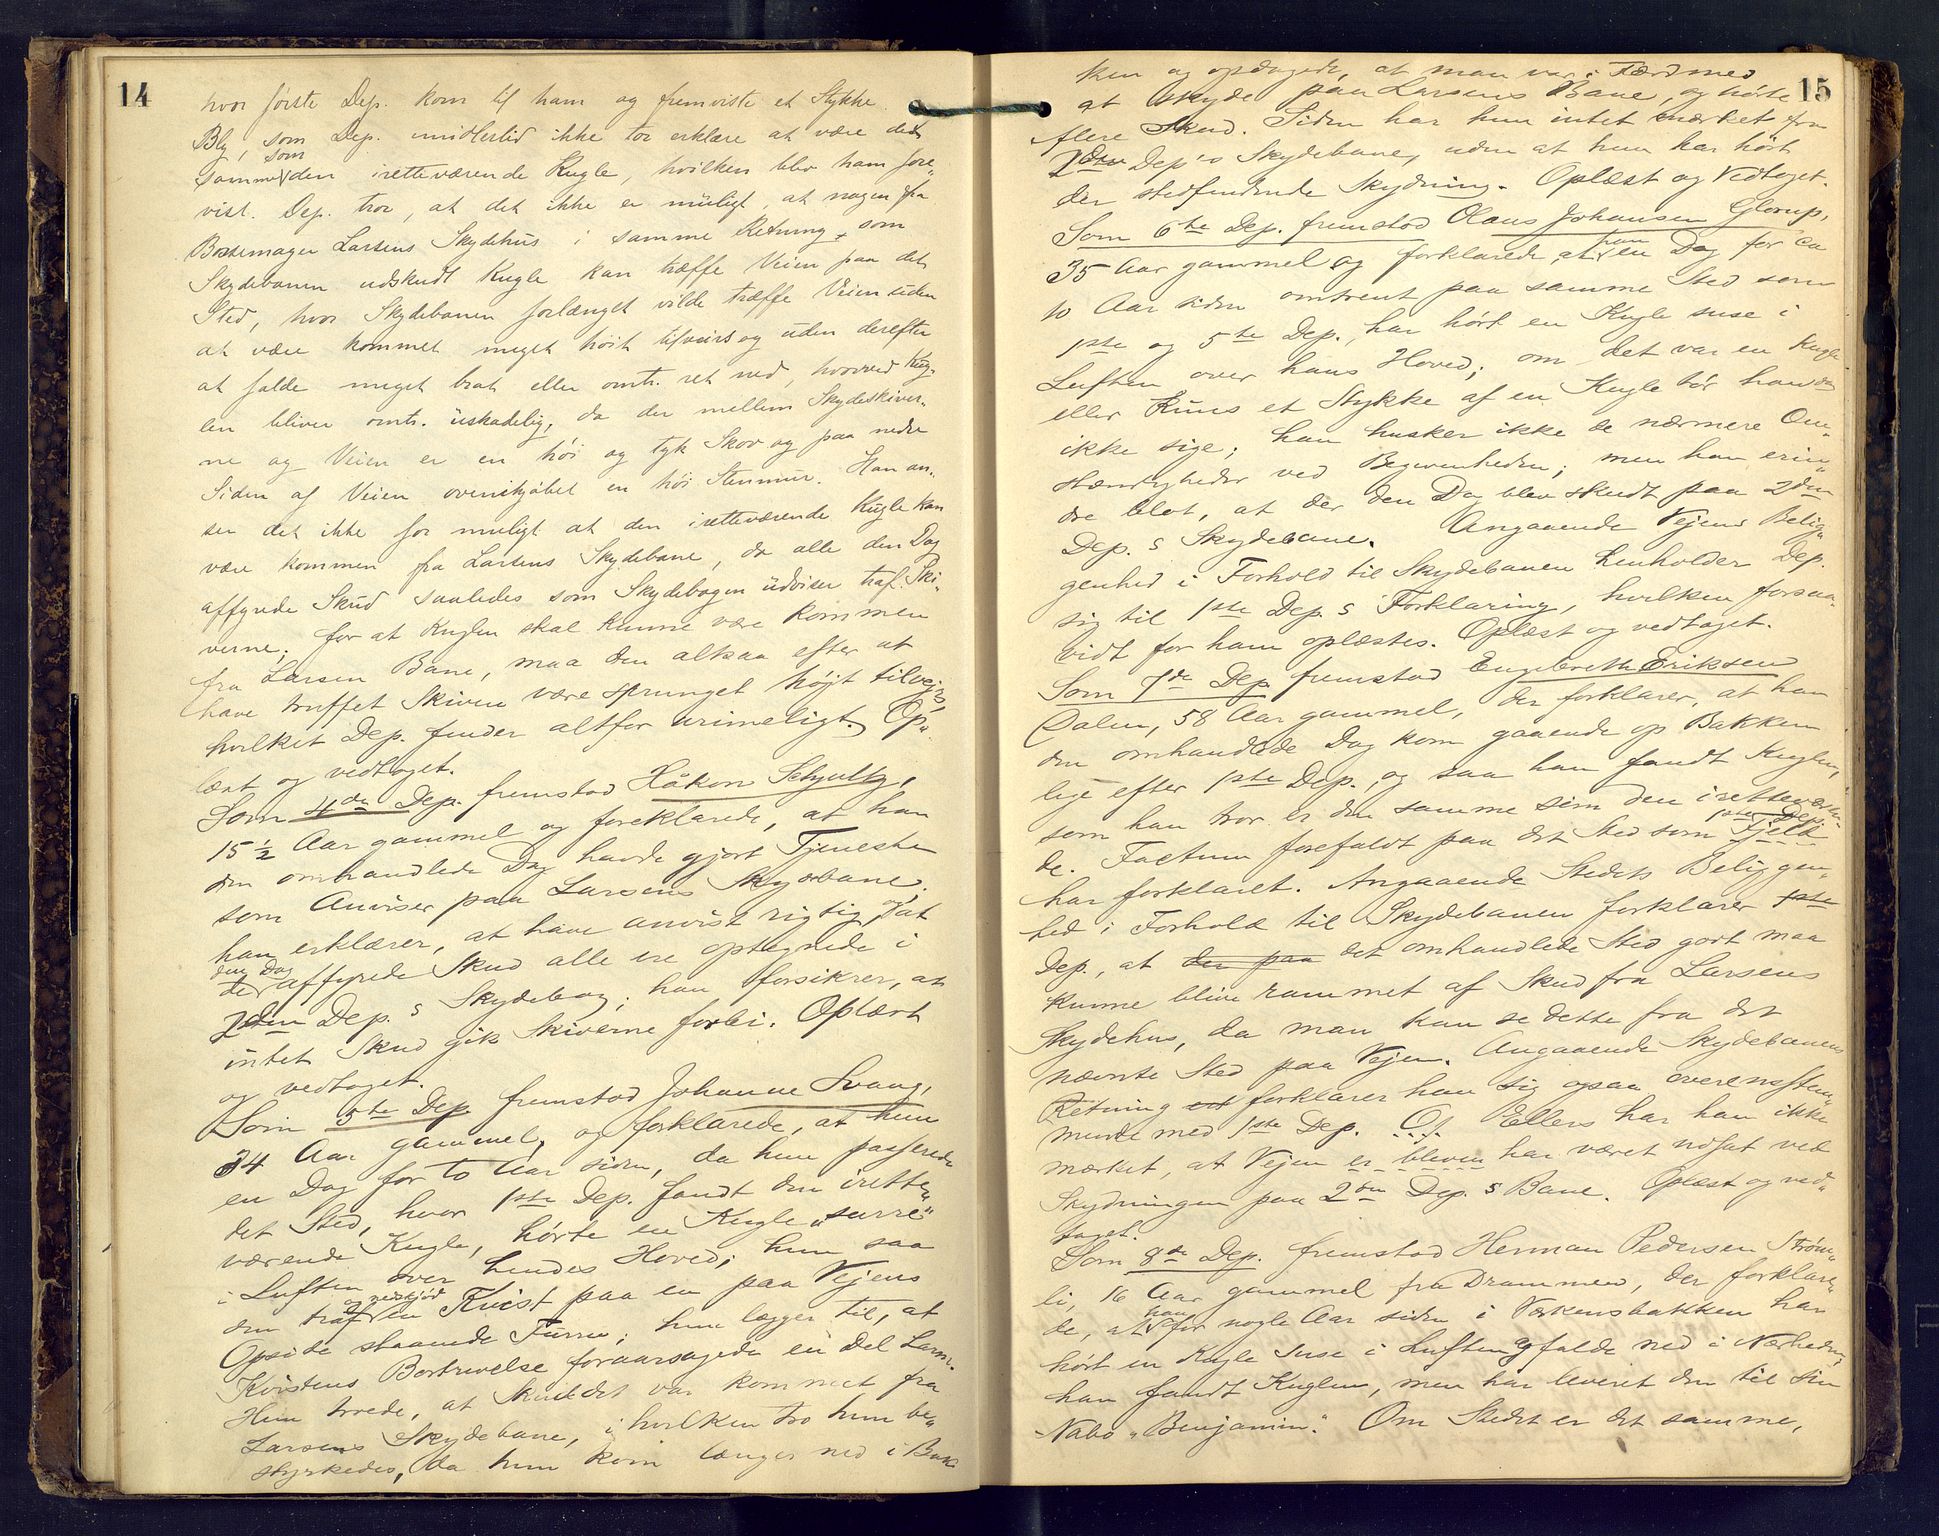 14
hvor første Dep. kom til ham og fremviste et Stykke
Bly, som Dep. imidlertid ikke tør erklære at være det
samme som den iretteværende Kugle, hvilken blev ham fore„
vist. Dep. tror, at det ikke er muligt, at nogen fra
Bøssemager Larsens Skydehus i samme Retning som
Skydebanen udskudt Kugle kan træffe Veien paa det
Sted, hvor Skydebanen forlænget vilde træffe Veien uden
at være kommet meget høit tilveirs og uden derefter
at falde meget brat eller omtr. ret ned, hvorved Kug„
len bliver omtr. uskadelig, da der mellem Skydeskiver„
ne og Veien er en høi og tyk Skov og paa nedre
Siden af Veien ovenikjøbet en høi Stenmur. Han an„
ser det ikke for muligt at den iretteværende Kugle kan
være kommen fra Larsens Skydebane, da alle den Dag
affyrede Skud saaledes som Skydebogen udviser traf Ski„
verne; for at Kuglen skal kunne være kommen
fra Larsens Bane, maa den altsaa efter at
have truffet Skiven være sprunget højt tilvejrs,
hvilket Dep. finder altfor urimeligt. Op„
læst og vedtaget.
Som 4de Dep. fremstod Håkon Schjultz,
15 ½ Aar gammel og forklarede, at han
den omhandlede Dag havde gjort Tjeneste
som Anviser paa Larsens Skydebane;
han erklærer, at have anvist rigtig, og at
der den Dag affyrede Skud alle ere optegnede i
2den Dep.s Skydebog; han forsikrer, at
intet Skud gik Skiverne forbi. Oplæst
og vedtaget.
Som 5te Dep. fremstod Johanne Svang,
34 Aar gammel, og forklarede, at hun
en Dag for to Aar siden, da hun passerede
det Sted, hvor 1ste Dep. fandt den irette„
værende Kugle, hørte en Kugle „surre“
i Luften over hendes Hoved; hun saa
den traf og nedskjød en Kvist paa en paa Vejens
Opside staaende Furru; hun lægger til, at
Kvistens Bortrivelse foraarsagede en Del Larm.
Hun troede, at Skuddet var kommet fra
Larsens Skydebane, i hvilken tro hun be„
styrkedes, da hun kom længer ned i Bak
15
ken og opdagede, at man var i Færd med
at skyde paa Larsens Bane, og hørte
flere Skud. Siden har hun intet mærket fra
2den Dep's Skydebane, uden at hun har hørt
der stedfindende Skydning. Oplæst og Vedtaget.
Som 6te Dep. fremstod Olaus Johansen Glorup,
35 Aar gammel og forklarede, at han en Dag for ca
to Aar siden omtrent paa samme Sted som
1ste og 5te Dep., har hørt en Kugle suse i
Luften over hans Hoved; om det var en Kugle
eller Kuns et Stykke af en Kugle tør han
ikke sige; han husker ikke de nærmere Om„
stændigheder ved Begivenheden; men han erin„
dre blot, at der den Dag blev skudt paa 2den
Dep.s Skydebane. Angaaende Vejens Belig„
genhed i Forhold til Skydebanen henholder Dep.
sig til 1ste Dep.s Forklaring, hvilken forsaa„
vidt for ham oplæstes. Oplæst og vedtaget.
Som 7de Dep. fremstod Engebreth Eriksen
Dalen, 58 Aar gammel, der forklarer, at han
den omhandlede Dag kom gaaende op Bakken
lige efter 1ste Dep., og saa han fandt Kuglen,
som han tror er den samme som den iretteværen„
de. Factum forefaldt paa det Sted som Fjeld 1ste Dep.
har forklaret. Angaaende Stedets Beliggen„
hed i Forhold til Skydebanen forklarer 1ste
Dep., at der paa det omhandlede Sted godt maa
kunne blive rammet af Skud fra Larsens
Skydehus, da man kan se dette fra det
nævnte Sted paa Vejen. Angaaende Skydebanens
Retning forklarer han sig ogsaa overensstem„
mende med 1ste Dep. Of Ellers har han ikke
mærket, at Vejen er bleven har været udsat ved
Skydningen paa 2den Dep.s Bane. Oplæst og ved„
taget.
Som 8de Dep. fremstod Herman Pedersen Strøm„
li, 16 Aar gammel fra Drammen, der forklare„
de, at han for nogle Aar siden i Værkensbakken har
hørt en Kugle suse i Luften og falde ned i Nærheden;
han fandt Kuglen, men har leveret den til sin
Nabo „Benjamin“. Om Stedet er det samme,